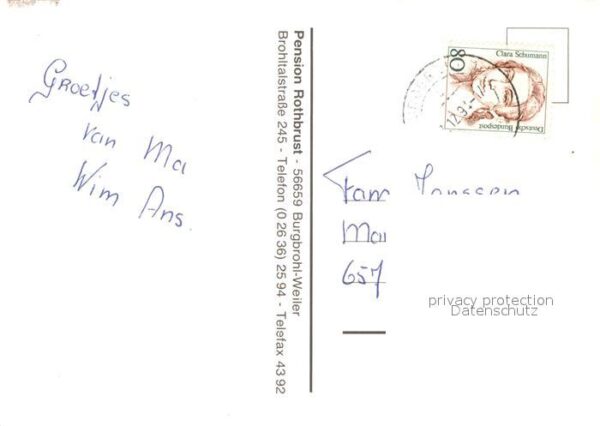 Groetjes
van Ma
Wim Ans.
Pension Rothbrust - 56659 Burgbrohl-Weiler
Brohltalstraße 245 - Telefon (0 26 36) 25 94 - Telefax 43 92
Clara Schumann
80
Deutsche Bundespost
Fam
657
privacy protection
Datenschutz